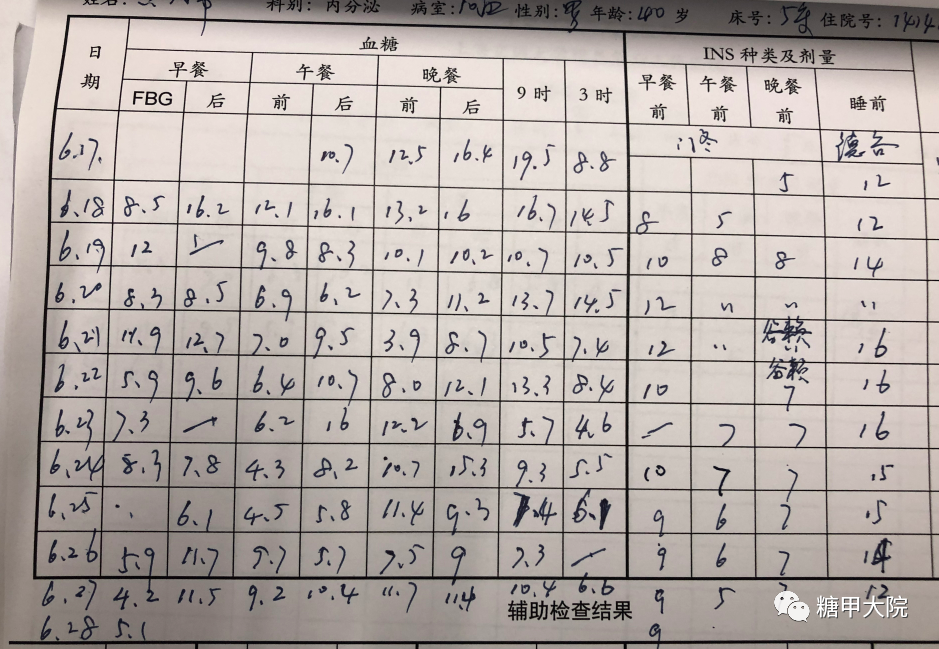 科别: 内分泌 病室: 性别: 男 年龄: 40 岁 床号: 住院号: 1414
日期 血糖 INS 种类及剂量
早餐 午餐 晚餐 9时 3时 早餐前 午餐前 晚餐前 睡前
FBG 后 前 后 前 后
6.17. 10.7 12.5 16.4 19.5 8.8 门冬 德谷
5 12
6.18 8.5 16.2 12.1 16.1 13.2 16 16.7 14.5 8 5 12
6.19 12 9.8 8.3 10.1 10.2 10.7 10.5 10 8 8 14
6.20 8.3 8.5 6.9 6.2 7.3 11.2 13.7 14.5 12 " " "
6.21 11.9 12.7 7.0 9.5 3.9 8.7 10.5 7.4 12 " 谷赖 " 16
6.22 5.9 9.6 6.4 10.7 8.0 12.1 13.3 8.4 10 谷赖 7 16
6.23 7.3 — 6.2 16 12.2 6.9 5.7 4.6 — 7 7 16
6.24 8.3 7.8 4.3 8.2 10.7 15.3 9.3 5.5 10 7 7 15
6.25 6.1 4.5 5.8 11.4 9.3 7.4 6.1 9 6 7 15
6.26 5.9 11.7 9.7 5.7 7.5 9 7.3 — 9 6 7 14
6.27 4.2 11.5 9.2 10.4 11.7 11.4 10.4 6.6 9 5 7 12
辅助检查结果
糖甲大院
6.28 5.1 9